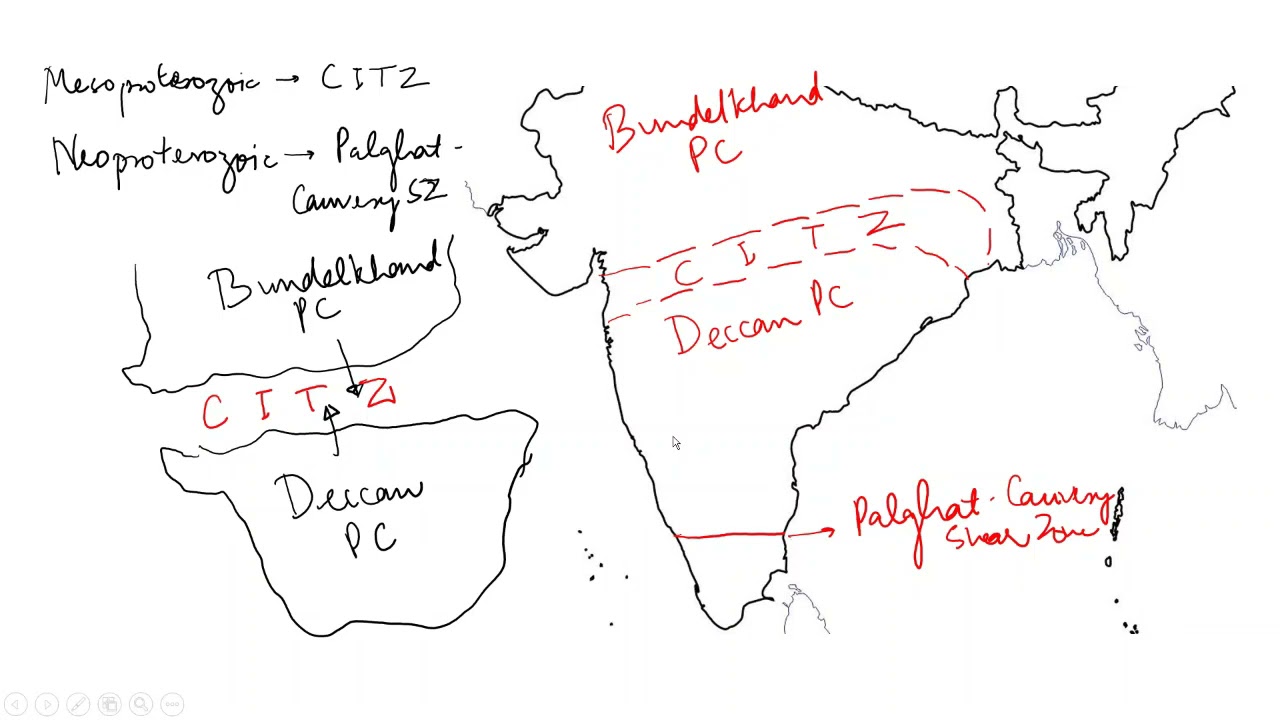 Mesoproterozoic → CITZ
Neoproterozoic → Palghat-
Cauvery SZ
Bundelkhand
PC
C I T Z
Deccan
PC
Bundelkhand
PC
C I T Z
Deccan PC
Palghat-Cauvery
Shear Zone